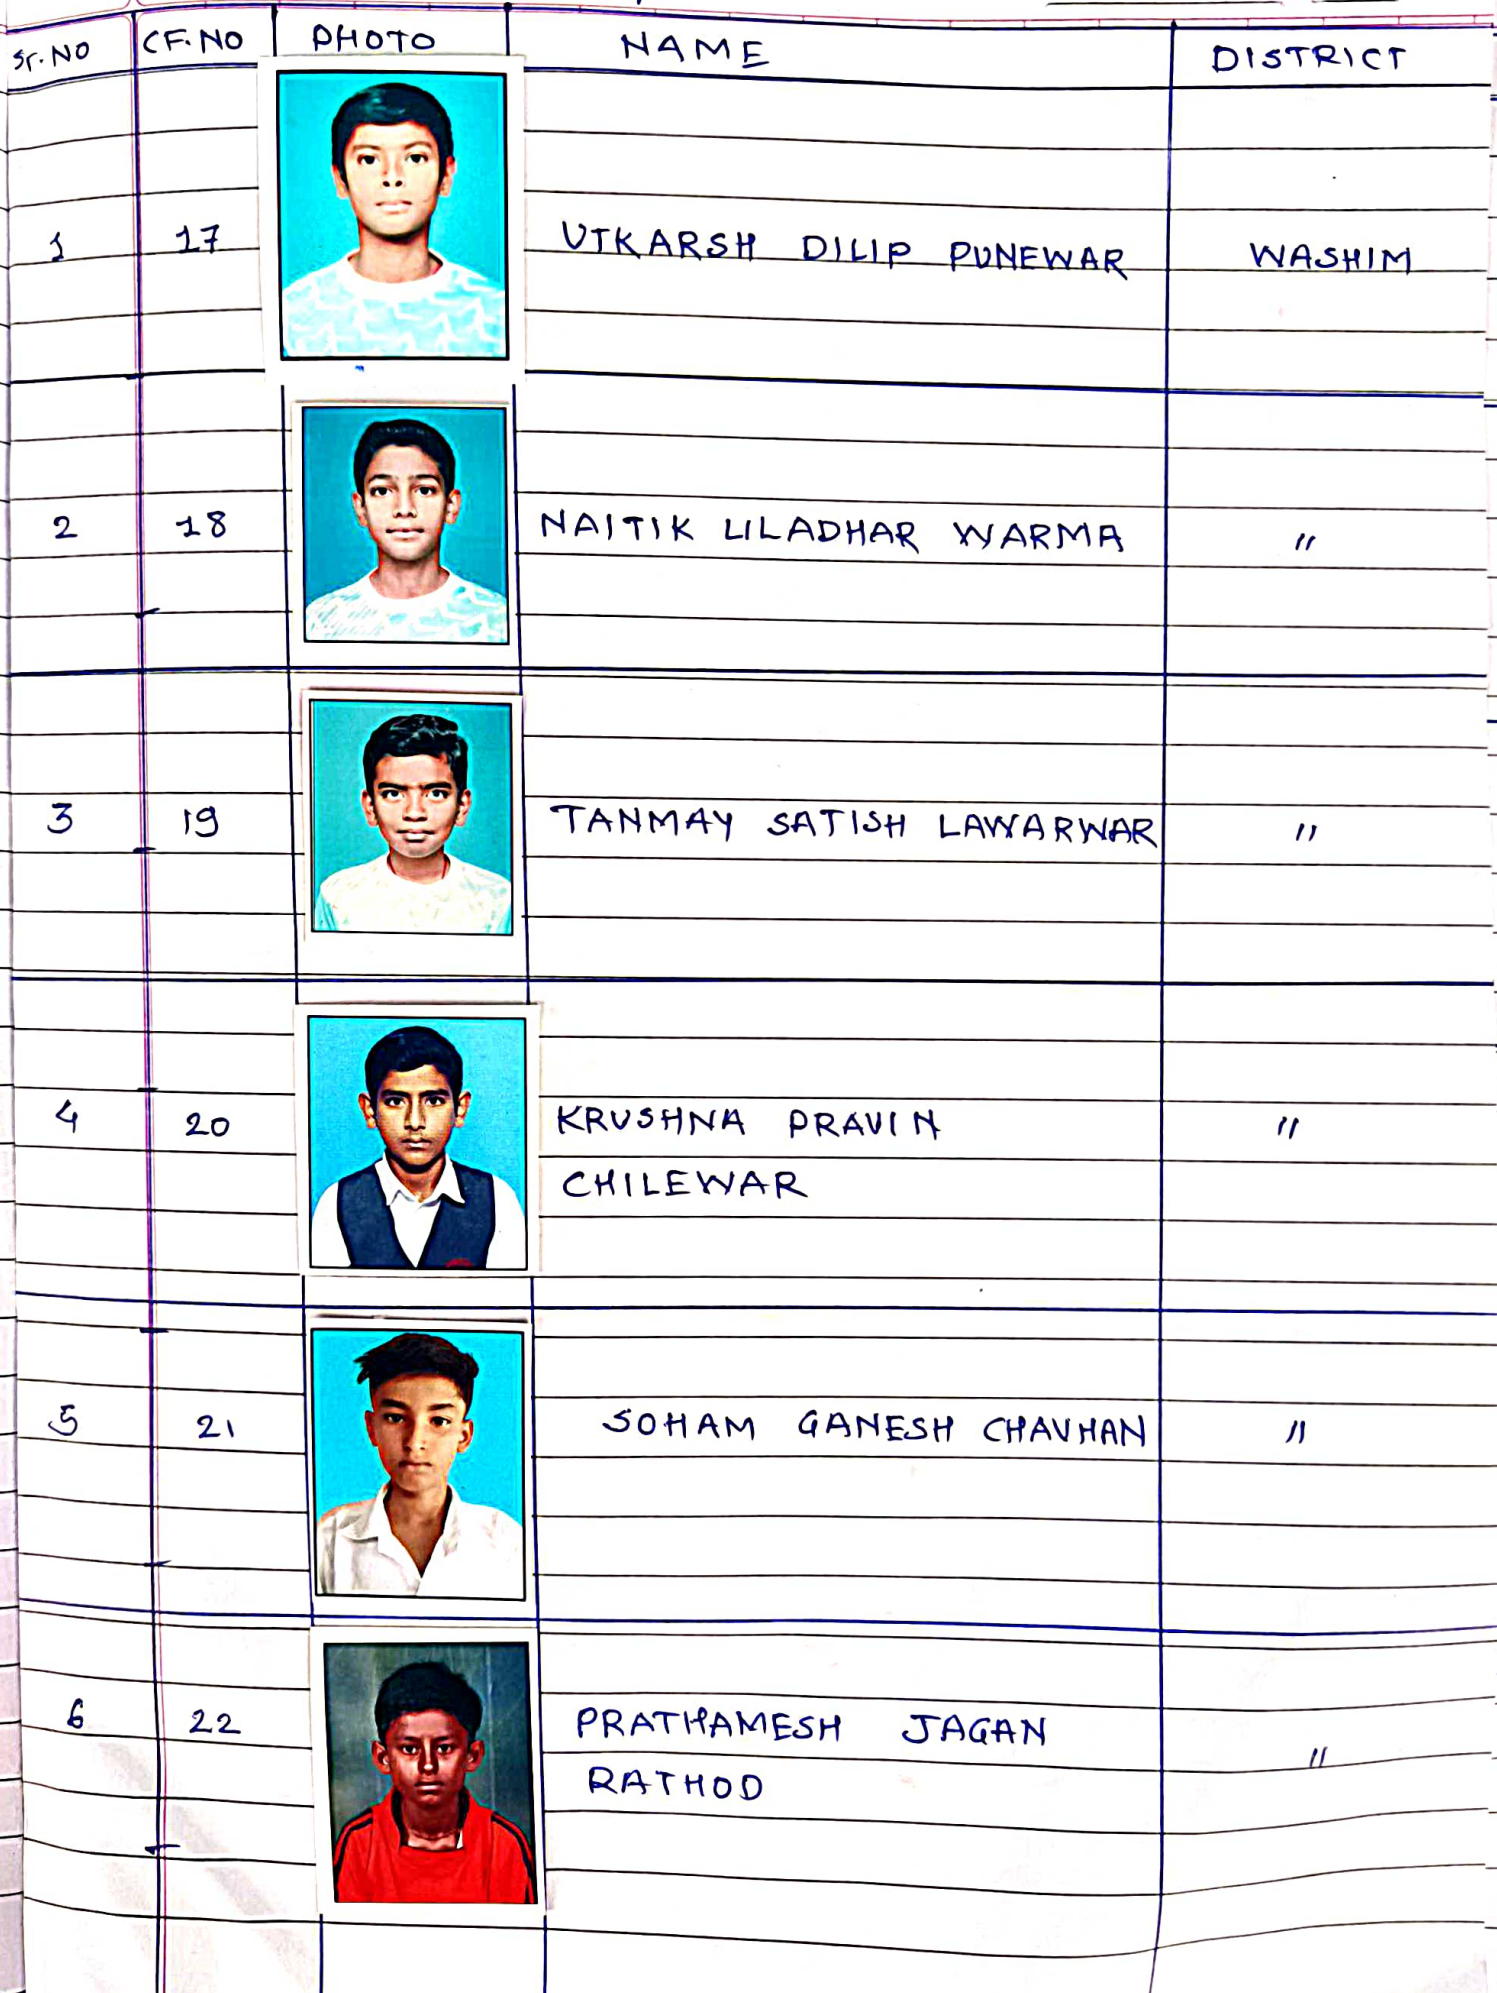 Sr. NO CF. NO PHOTO NAME DISTRICT
1 17 UTKARSH DILIP PUNEWAR WASHIM
2 18 NAITIK LILADHAR WARMA "
3 19 TANMAY SATISH LAWARWAR "
4 20 KRUSHNA PRAVIN "
CHILEWAR
5 21 SOHAM GANESH CHAVHAN "
6 22 PRATHAMESH JAGAN "
RATHOD